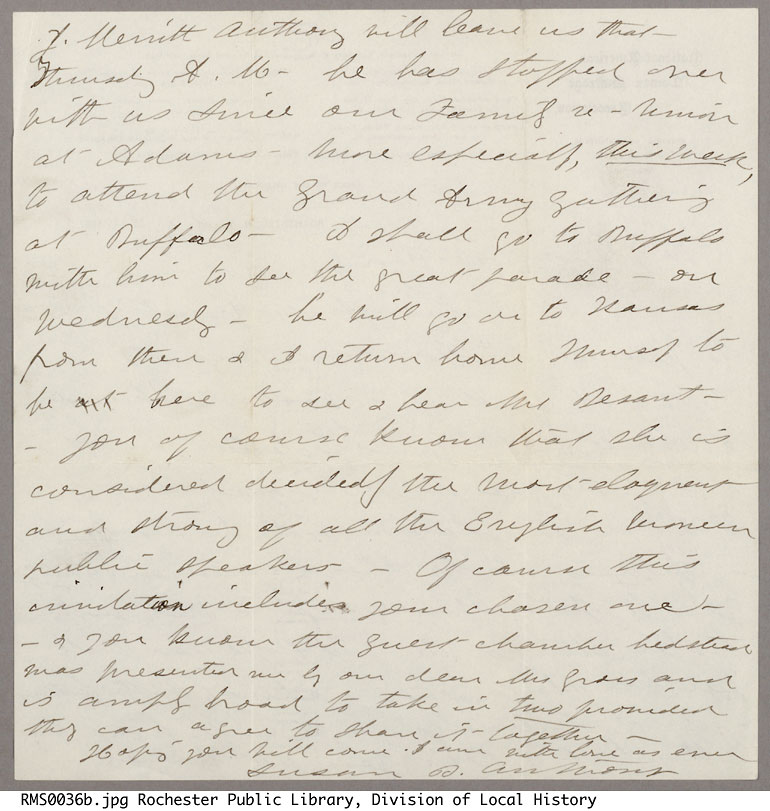 J. Merritt Anthony will leave us that
Thursday A. M - he has stopped over
with us since our Family re-union
at Adams - more especially, this week,
to attend the Grand Army gathering
at Buffalo - I shall go to Buffalo
with him to see the great parade - on
Wednesday - he will go on to Kansas
from there & I return home Thursday to
be at here to see & hear Mrs Besant -
- You of course know that she is
considered decidedly the most eloquent
and strong of all the English women
public speakers - Of course this
invitation includes your chosen one -
- & you know the guest chamber bedstead
was presented me by our dear Mrs Gross and
is amply broad to take in two provided
they can agree to share it together -
Hoping you will come - I am with love as ever
Susan B. Anthony
RMS0036b.jpg Rochester Public Library, Division of Local History